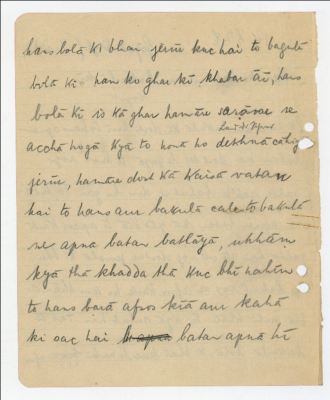 hans bolā ki bhai jerūr kuc hai to bagulā
bolā ki han ko ghar kī khabar āī, hans
bolā ki is kā ghar hamāre sarāvar se
acchā hogā kyā to honā ho dekhnā cāhiye
jerūr, hamāre dost kā kaisā vatan
hai to hans aur bakulā cale to bakulā
ne apnā batan batlāyā, uhhām
kyā thā khadda thā kuc bhī nahīm
to hans barā afsos kīā aur kahā
ki sac hai batan apnā hī